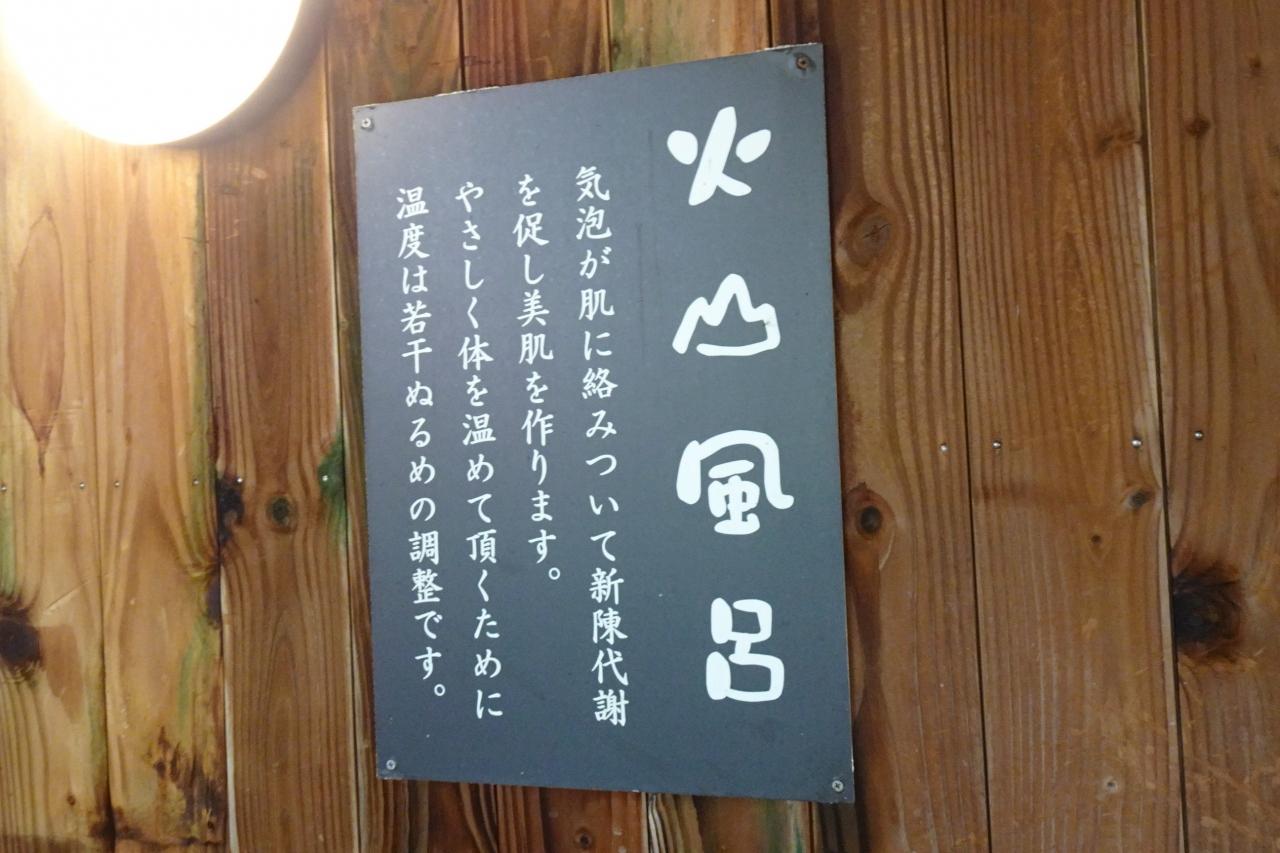 火山風呂
気泡が肌に絡みついて新陳代謝
を促し美肌を作ります。
やさしく体を温めて頂くために
温度は若干ぬるめの調整です。